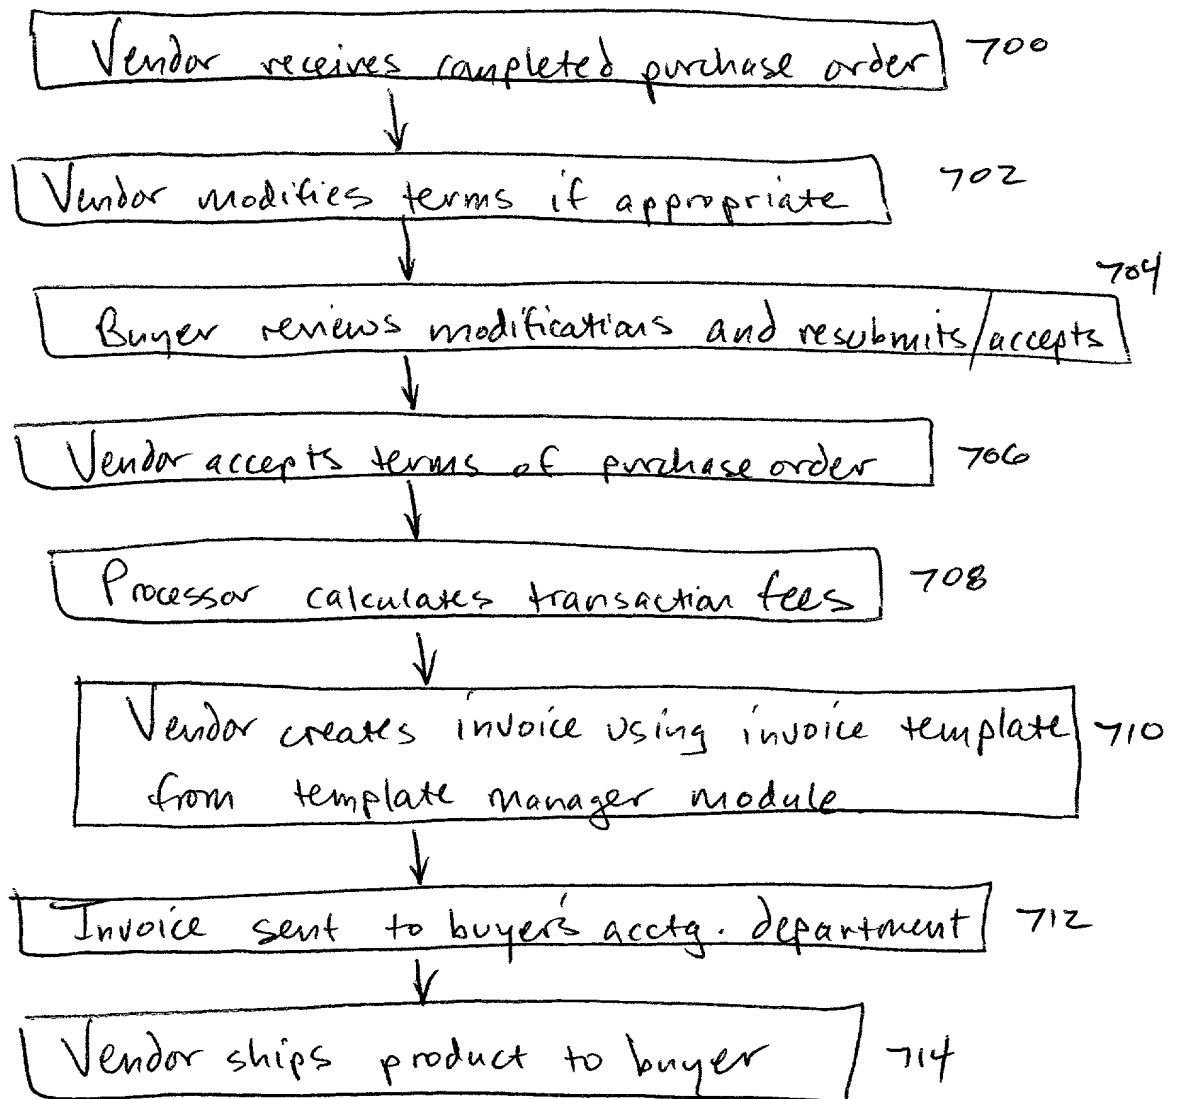 Vendor receives completed purchase order 700
Vendor modifies terms if appropriate 702
704
Buyer reviews modifications and resubmits/accepts
Vendor accepts terms of purchase order 706
Processor calculates transaction fees 708
Vendor creates invoice using invoice template 710
from template manager module
Invoice sent to buyer's acctg. department 712
Vendor ships product to buyer 714